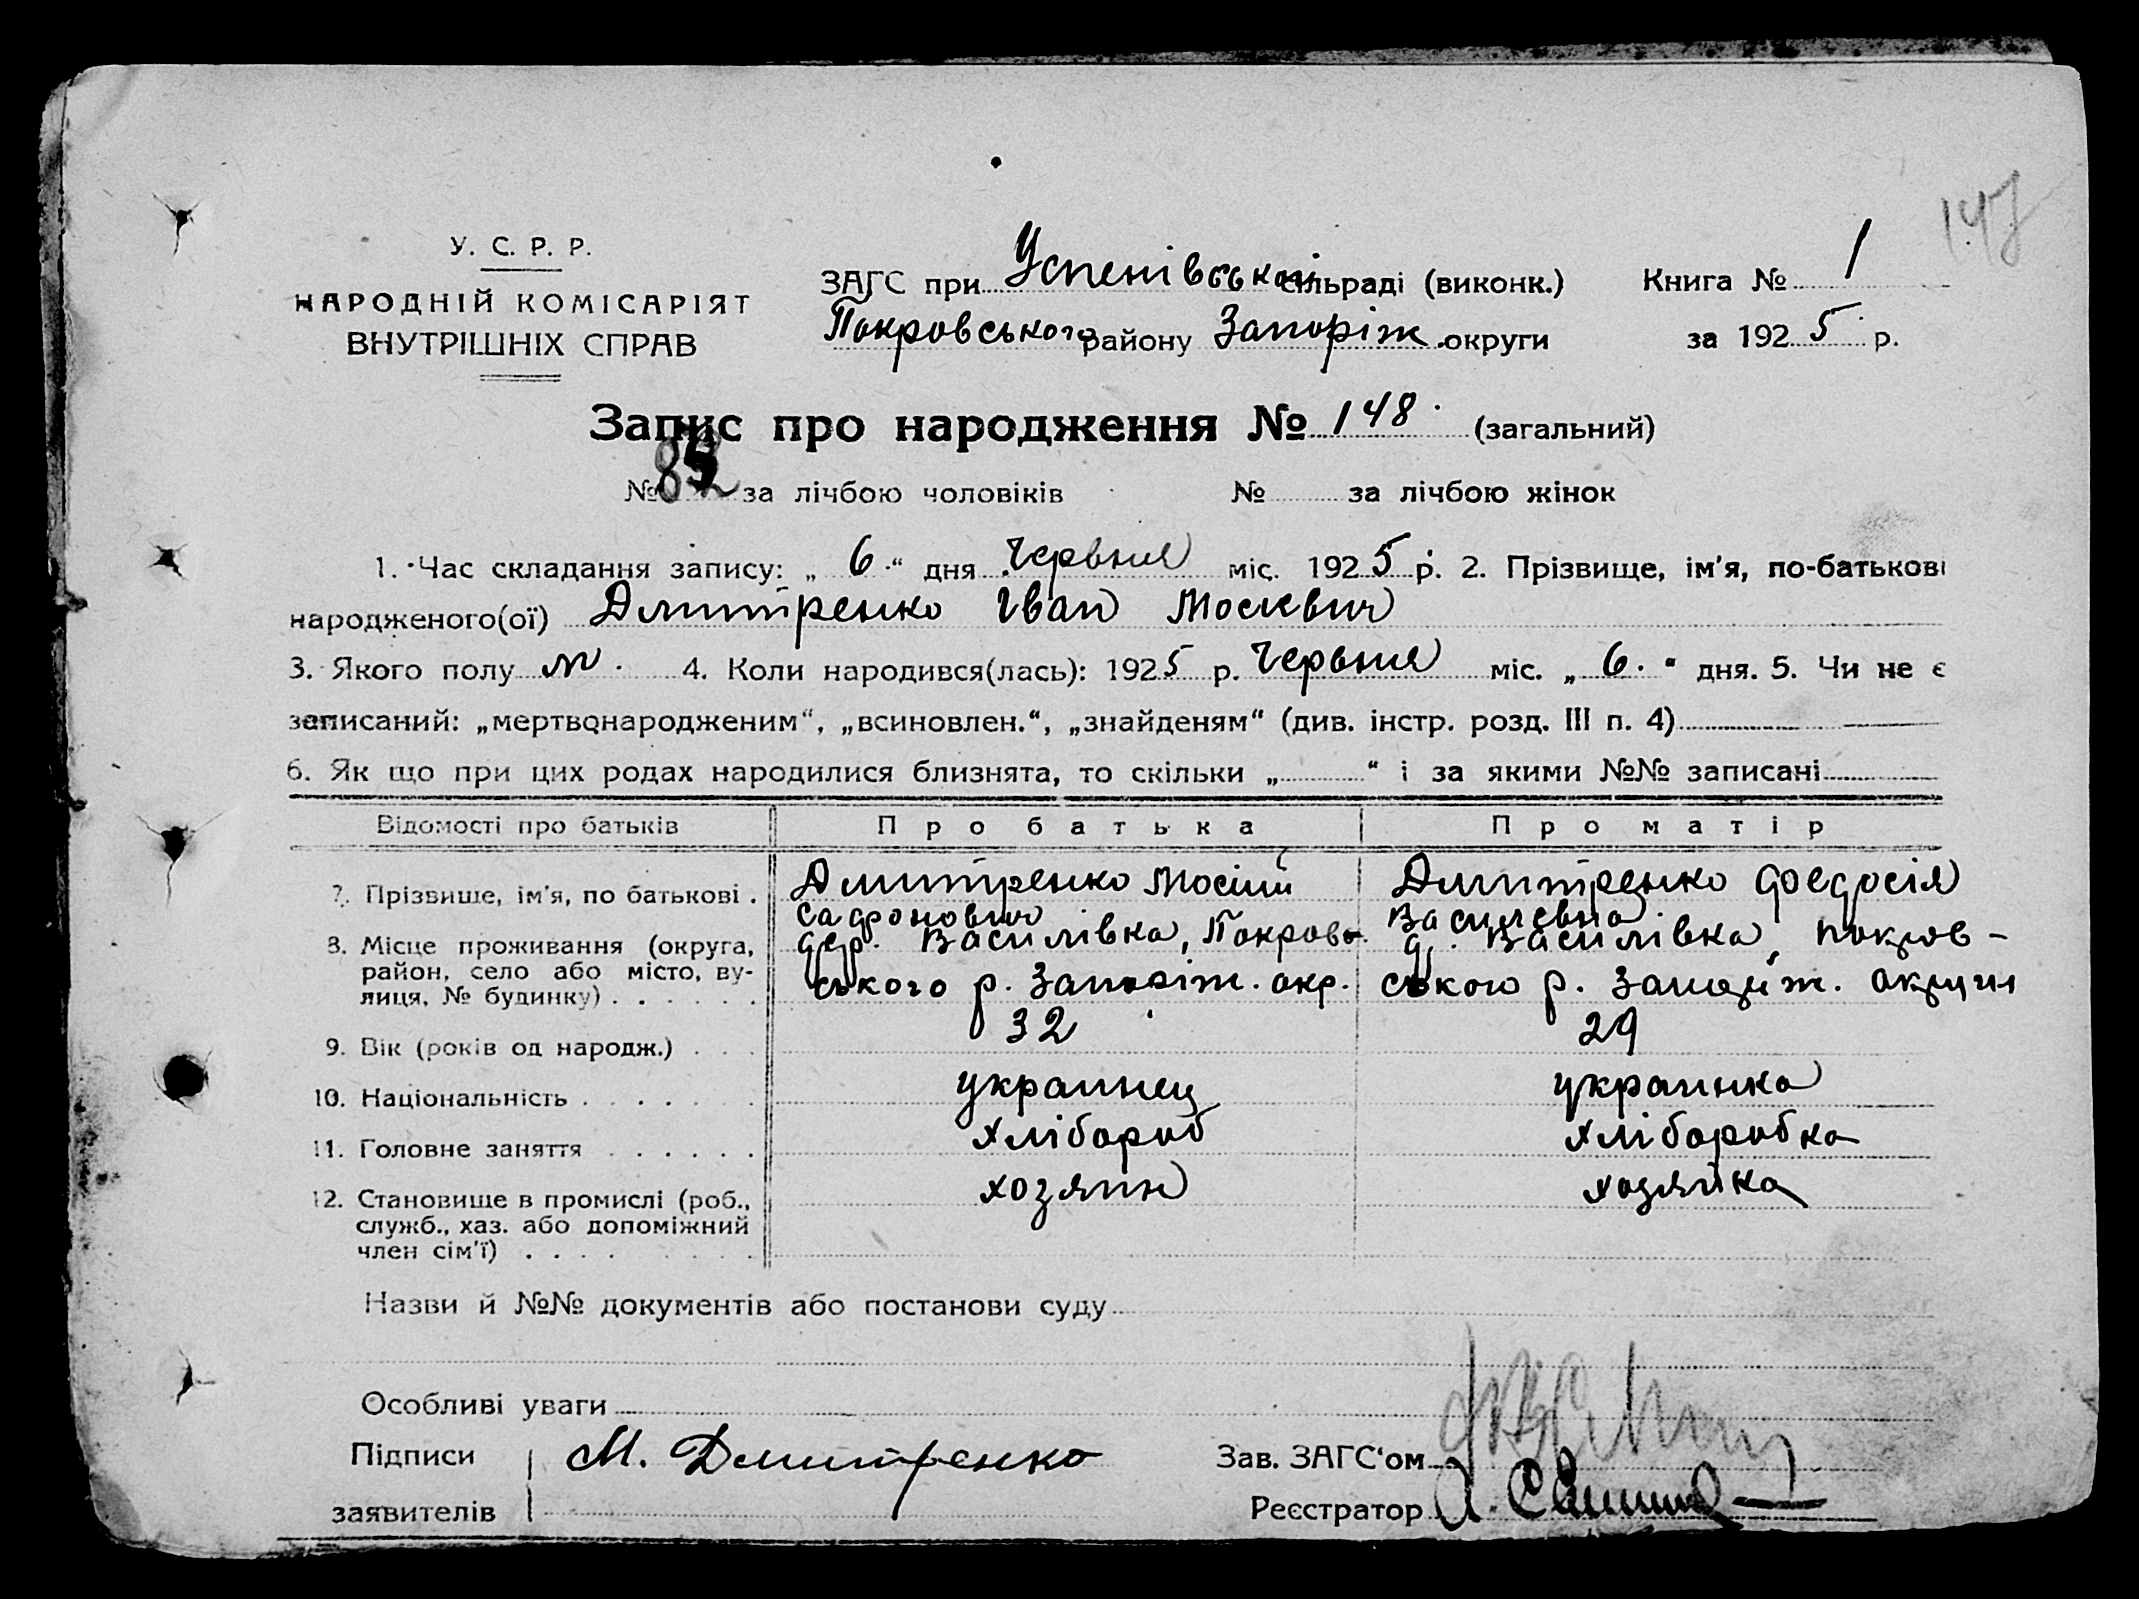 147
У. С. Р. Р.
НАРОДНІЙ КОМІСАРІЯТ
ВНУТРІШНІХ СПРАВ
ЗАГС при Успенівській сільраді (виконк.) Книга № 1
Покровського району Запоріж. округи за 1925 р.
Запис про народження № 148 (загальний)
№ за лічбою чоловіків № за лічбою жінок
1. Час складання запису: „ 6 “ дня Червня міс. 1925 р. 2. Прізвище, ім'я, по-батькові
народженого(ої) Дмитренко Іван Мосиевич
3. Якого полу м. 4. Коли народився(лась): 1925 р. Червня міс. „ 6. “ дня. 5. Чи не є
записаний: „мертвонародженим“, „всиновлен.“, „знайденям“ (див. інстр. розд. III п. 4)
6. Як що при цих родах народилися близнята, то скільки „ “ і за якими №№ записані
Відомості про батьків Про батька Про матір
7. Прізвище, ім'я, по батькові . Дмитренко Мосій Дмитренко Феодосія
Сафронович Василевна
8. Місце проживання (округа, дер. Василівка, Покров- д. Василівка, Покров-
район, село або місто, ву- ського р. Запоріж. окр. ського р. Запоріж. округи
лиця, № будинку) . . . . . .
9. Вік (років од народж.) . . . 32 29
10. Національність . . . . . . . украинец украинка
11. Головне заняття . . . . . . хлібороб хліборобка
12. Становище в промислі (роб., хозяин хозяйка
служб., хаз. або допоміжний
член сім'ї) . . . .
Назви й №№ документів або постанови суду
Особливі уваги
Підписи М. Дмитренко Зав. ЗАГС'ом
заявителів Реєстратор